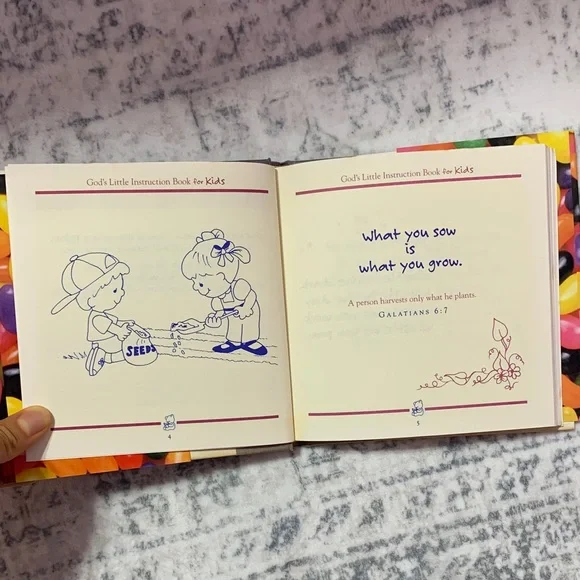 God's Little Instruction Book for Kids
SEEDS
4
God's Little Instruction Book for Kids
What you sow
is
what you grow.
A person harvests only what he plants.
GALATIANS 6:7
5